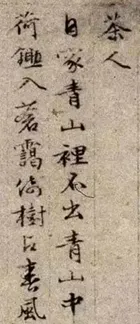 茶人
日家青山裡不出青山中
荷鋤入茗靄倚樹占春風